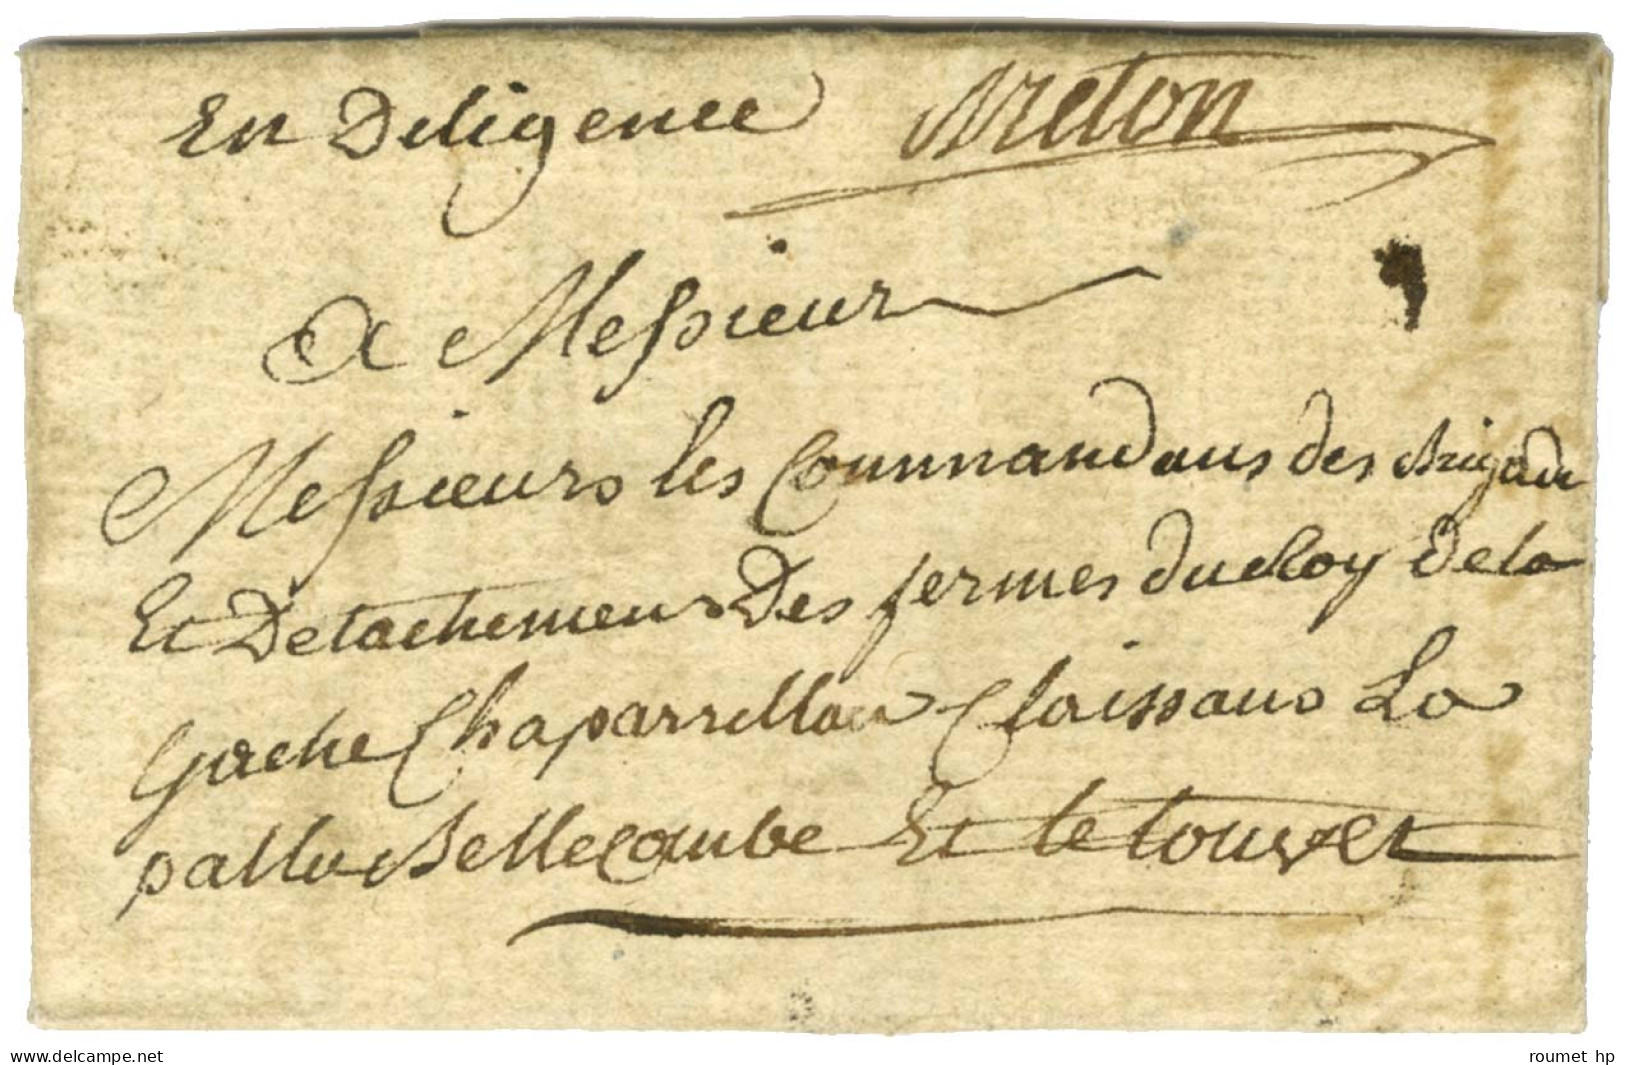 En Deligence Breton
A Messieur
Messieurs les Commandans des Brigade
Et Detachemens Des fermes du Roy de la
gache Chaparrillan Claissans La
palluˢ Bellecombe Et le touvet
www.delcampe.net
roumet_hp